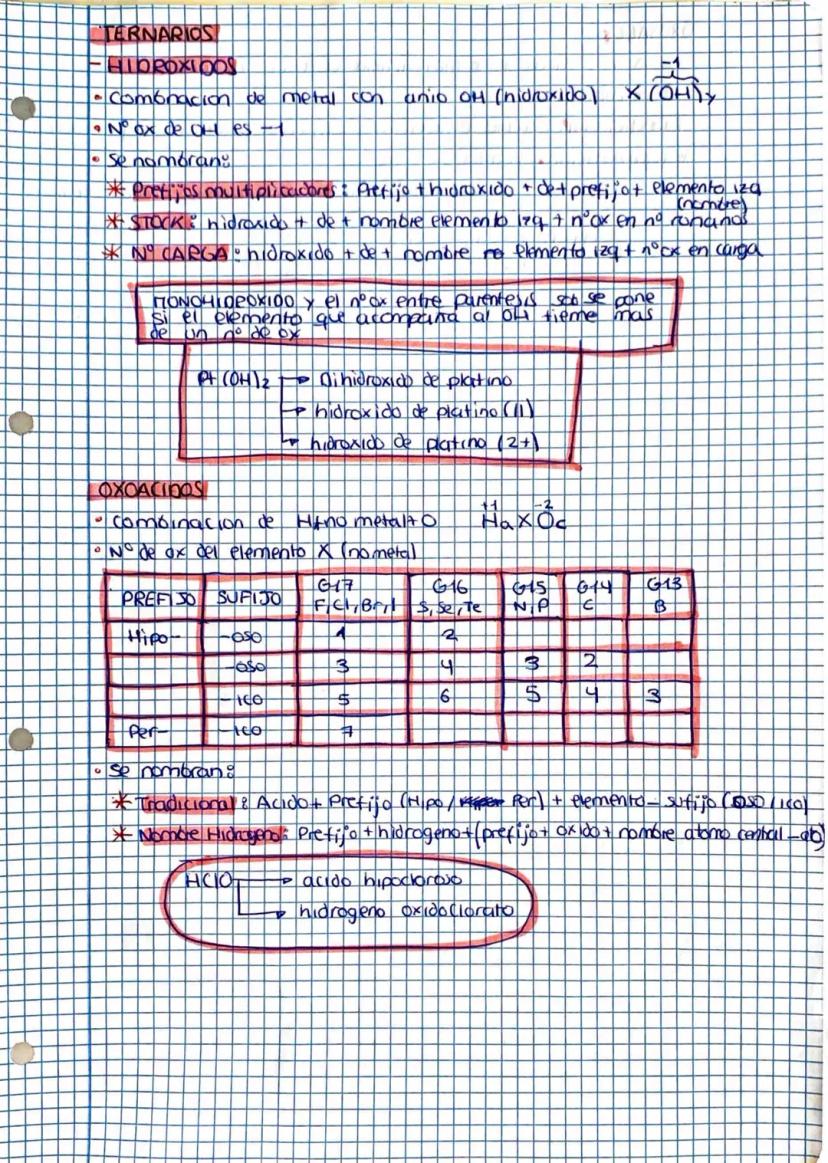 TERNARIOS
- HIDROXIDOS
-1
• Combinacion de metal con anio OH (hidroxido) X(OH)y
• Nº ox de OH es -1
• Se nombran:
* Prefijos multiplicadores: Prefijo + hidroxido + de + prefijo + elemento izq
(nombre)
* STOCK: hidroxido + de + nombre elemento izq + nº ox en nº romanos
* Nº CARGA: hidroxido + de + nombre elemento izq + nº ox en carga
MONOHIDROXIDO y el nº ox entre parentesis solo se pone
si el elemento que acompaña al OH tieme mas
de un nº de ox
Pt(OH)2 → Dihidroxido de platino
→ hidroxido de platino (II)
→ hidroxido de platino (2+)
OXOACIDOS
+1 -2
• Combinacion de H+no metal+O HaXOc
• Nº de ox del elemento X (no metal)
PREFIJO SUFIJO G17 G16 G15 G14 G13
F, Cl, Br, I S, Se, Te N, P C B
Hipo- -oso 1 2
-oso 3 4 3 2
-ico 5 6 5 4 3
Per- -ico 7
• Se nombran:
* Tradicional: Acido + Prefijo (Hipo/ Per) + elemento - sufijo (oso/ico)
* Nombre Hidrogeno: Prefijo + hidrogeno + (prefijo + oxido + nombre atomo central -ato)
HClO → acido hipocloroso
→ hidrogeno oxidoclorato